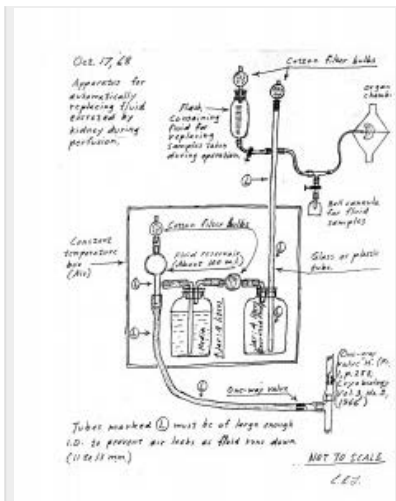 Oct. 17, '68
Apparatus for
automatically
replacing fluid
excreted by
kidney during
perfusion.
Cotton filter bulbs
Flask
Containing
fluid for
replacing
samples taken
during operation.
organ
chamber
Bell cannula
for fluid
samples
①
Constant
temperature
box
(Air)
Cotton filter bulbs
Fluid reservoir
(About 100 ml)
①
①
①
Glass or plastic
tube.
Media
①
①
One-way valve
One-way
valve
Cryobiology
1966)
Tubes marked ① must be of large enough
I.D. to prevent air leaks as fluid runs down
(11 to 13 mm.)
NOT TO SCALE